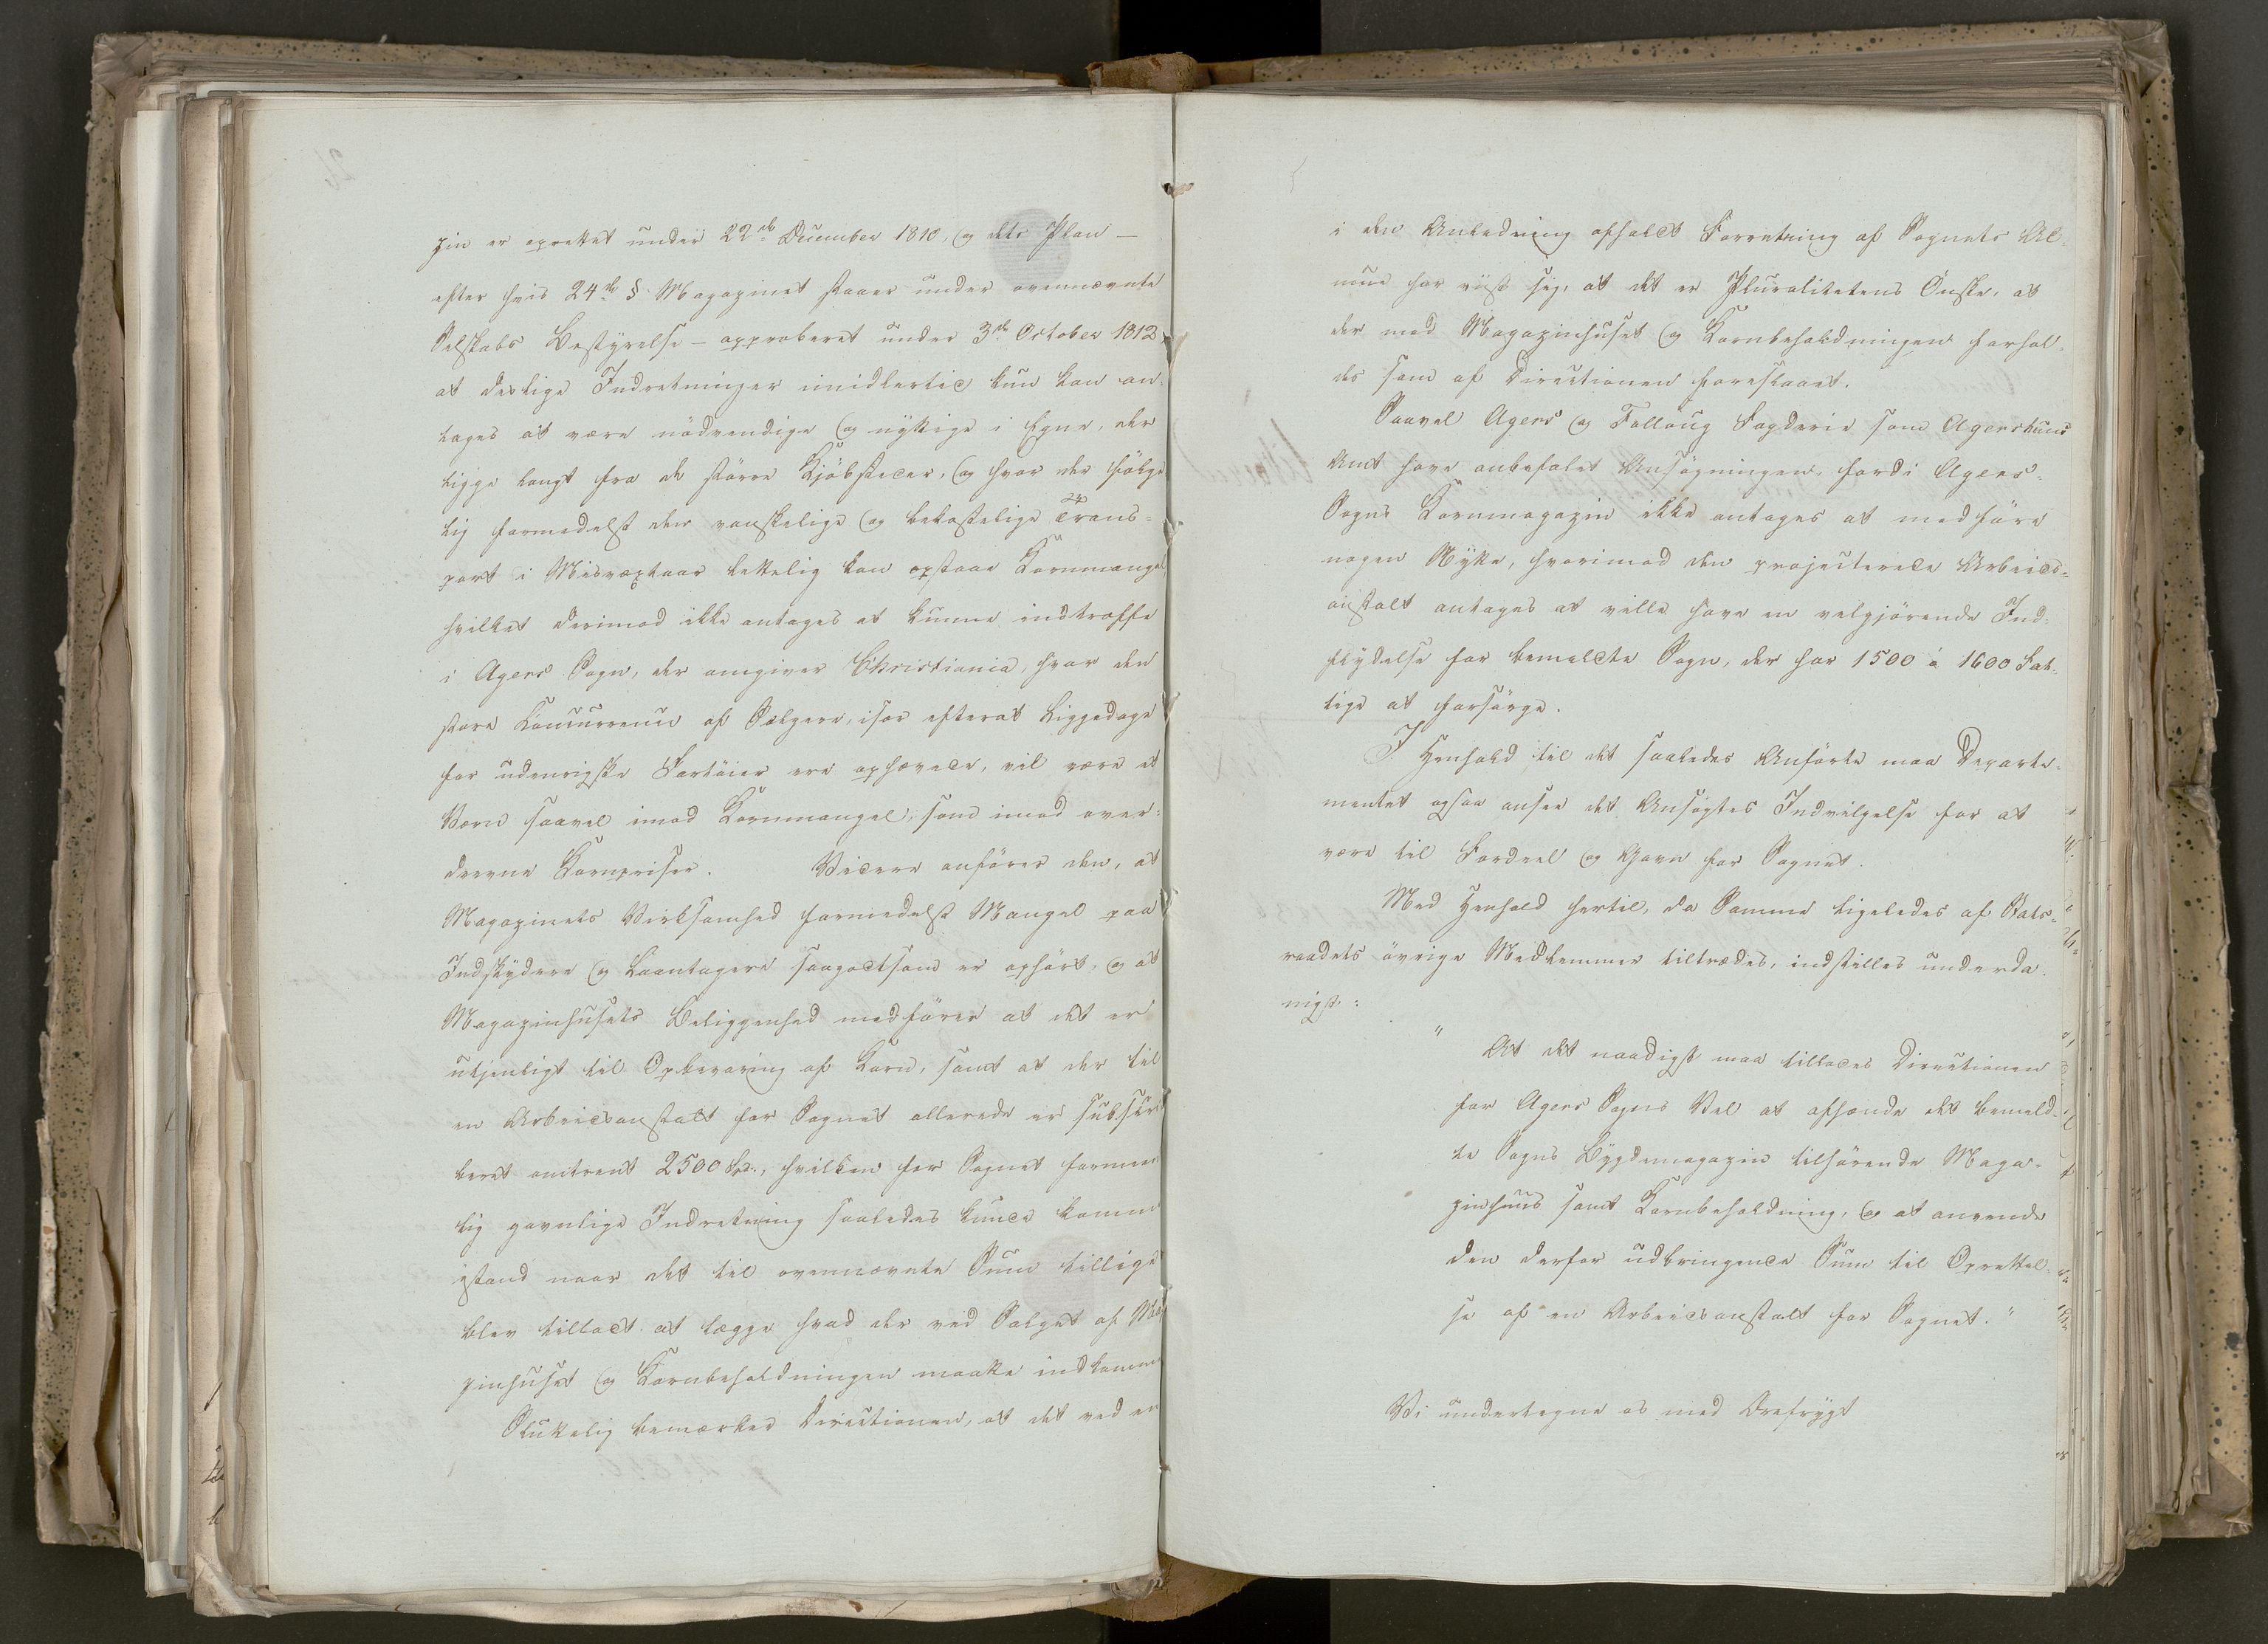 zin er oprettet under 22de December 1810, og dets Plan —
efter hvis 24de § Magazinet staaer under ovennævnte
Selskabs Bestyrelse — approberet under 3die October 1812,
at deslige Indretninger imidlertid kun kan an-
tages at være nödvendige og nyttige i Egne, der
ligge langt fra de större Kjöbstæder, og hvor der fölge-
lig formedelst den vanskelige og bekostelige Trans-
port i Misvæxtaar lettelig kan opstaae Kornmangel,
hvilket derimod ikke antages at kunne indtræffe
i Agers Sogn, der omgiver Christiania, hvor den
store Concurrence af Sælgere, især efterat Liggedage
for udenrigske Fartöier ere ophævede, vil være et
Værn saavel imod Kornmangel, som imod over-
drevne Kornpriser. Videre anföres den, at
Magazinets Virksomhed formedelst Mangel paa
Indskydere og Laantagere saagodtsom er ophört, og at
Magazinhusets Beliggenhed medförer at det er
utjenligt til Opbevaring af Korn, samt at der til
en Arbeidsanstalt for Sognet allerede er subscri-
beret omtrent 2500 Spd., hvilken for Sognet formeent-
lig gavnlige Indretning saaledes kunde komme
istand naar det til ovennævnte Sum tillige
blev tilladt at lægge hvad der ved Salget af Maga-
zinhuset og Kornbeholdningen maatte indkomme
Sluttelig bemærker Directionen, at det ved en
i den Anledning afholdt Forretning af Sognets Al-
mue har viist sig, at det er Pluralitetens Önske, at
der med Magazinhuset og Kornbeholdningen forhol-
des som af Directionen foreslaaet.
Saavel Agers og Folloug Fogderie som Agershuus
Amt have anbefalet Ansögningen, fordi Agers
Sogns Kornmagazin ikke antages at medföre
nogen Nytte, hvorimod den projecterede Arbeids-
anstalt antages at ville have en velgjörende Ind-
flydelse for bemeldte Sogn, der har 1500 à 1600 Fat-
tige at forsörge.
I Henhold til det saaledes Anförte maa Departe-
mentet ogsaa ansee det Ansögtes Indvilgelse for at
være til Fordeel og Gavn for Sognet.
Med Henhold hertil, da Samme ligeledes af Stats-
raadets övrige Medlemmer tiltrædes, indstilles underda-
nigst:
" At det naadigst maa tillades Directionen
for Agers Sogns Vel at afhænde det bemeld-
te Sogns Bygdemagazin tilhörende Maga-
zinhuus samt Kornbeholdning, og at anvende
den derfor udbringende Sum til Oprettel-
se af en Arbeidsanstalt for Sognet."
Vi undertegne os med Ærefrygt